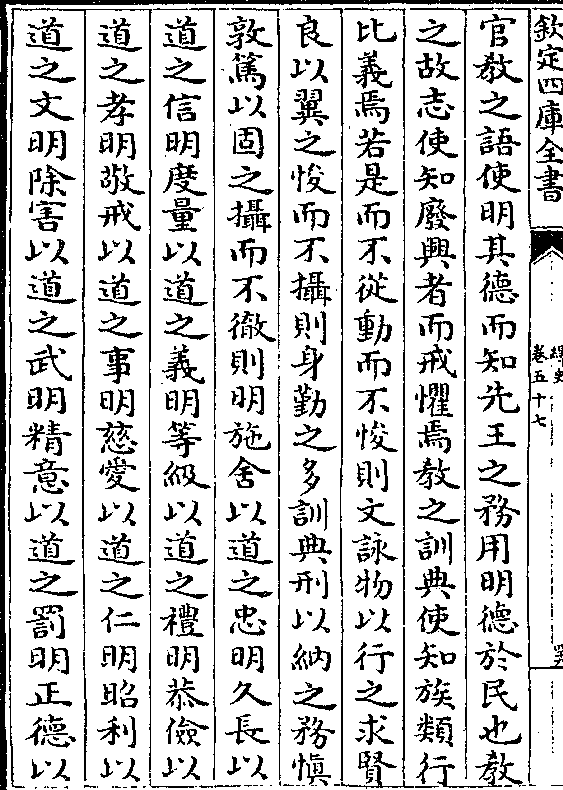 欽定四庫全書
繹史
卷五十七
官教之語使明其德而知先王之務用明德於民也教
之故志使知廢興者而戒懼焉教之訓典使知族類行
比義焉若是而不從動而不悛則文詠物以行之求賢
良以翼之悛而不攝則身勤之多訓典刑以納之務愼
敦篤以固之攝而不徹則明施舍以道之忠明久長以
道之信明度量以道之義明等級以道之禮明恭儉以
道之孝明敬戒以道之事明慈愛以道之仁明昭利以
道之文明除害以道之武明精意以道之罰明正德以